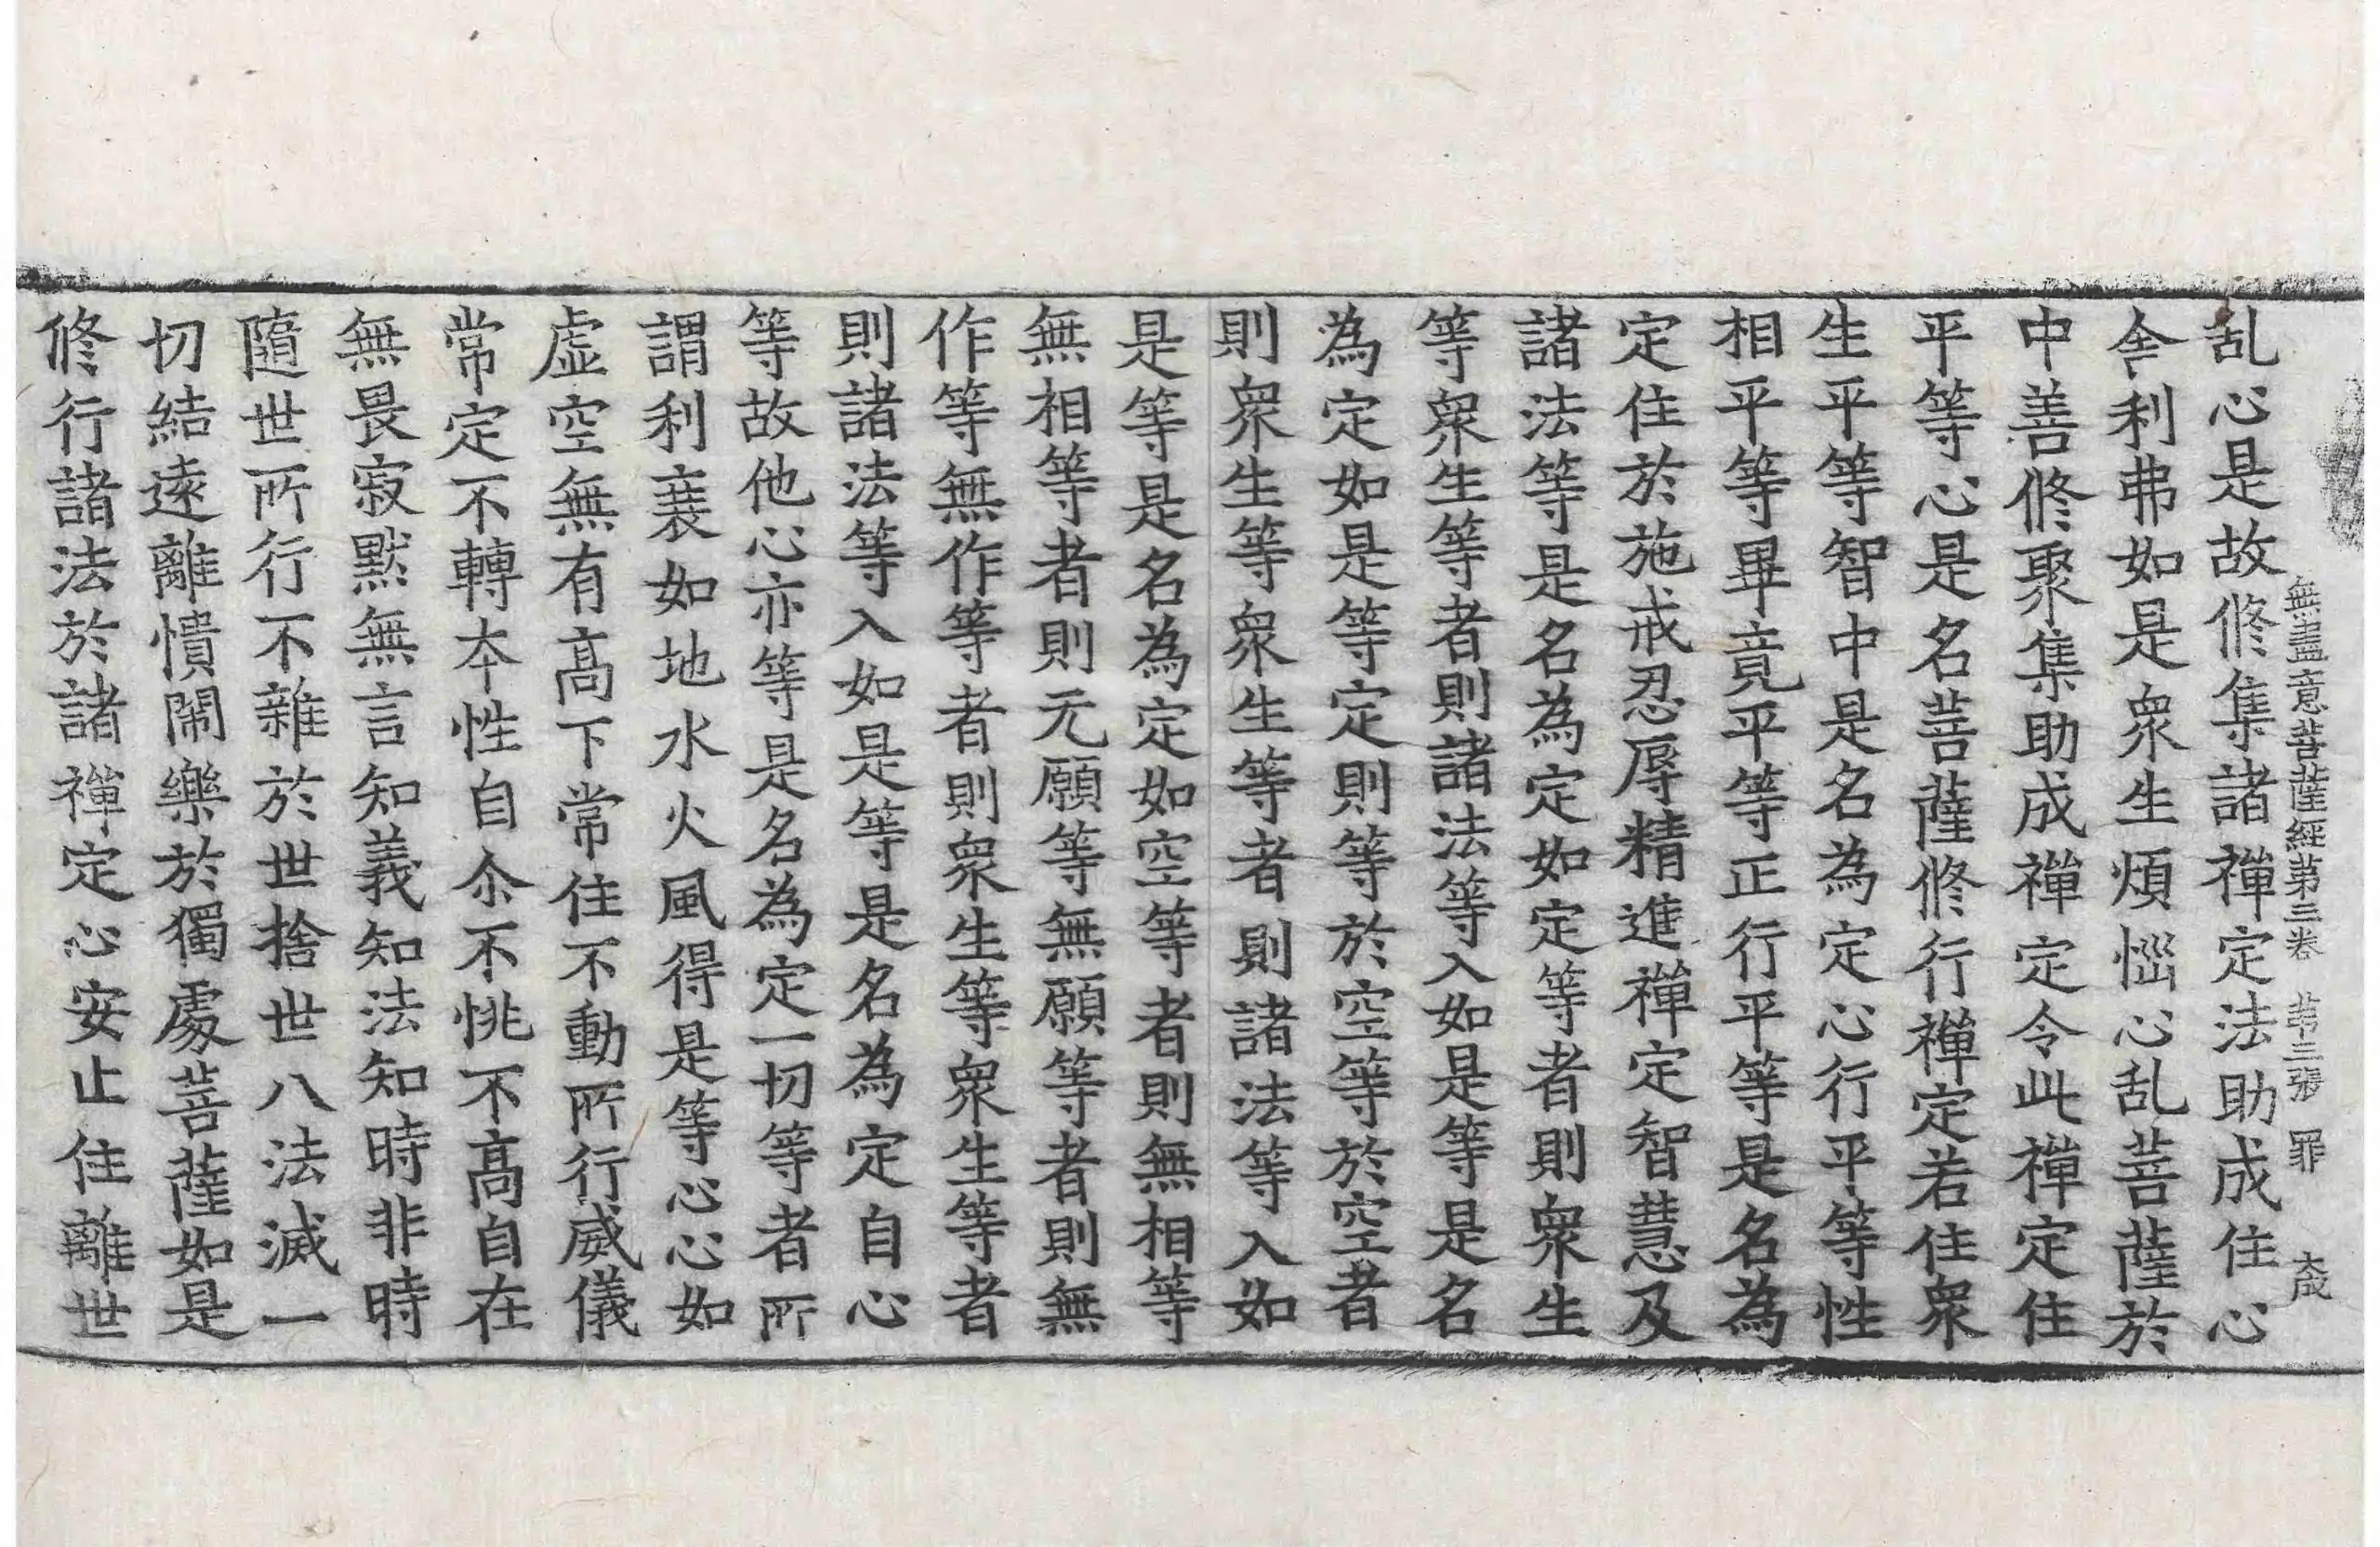 無盡意菩薩經第三卷 第三張 罪 大成
乱心是故修集諸禪定法助成住心
舍利弗如是衆生煩惱心乱菩薩於
中善修聚集助成禪定令此禪定住
平等心是名菩薩修行禪定若住衆
生平等智中是名為定心行平等性
相平等畢竟平等正行平等是名為
定住於施戒忍辱精進禪定智慧及
諸法等是名為定如定等者則衆生
等衆生等者則諸法等入如是等是名
為定如是等定則等於空等於空者
則衆生等衆生等者則諸法等入如
是等是名為定如空等者則無相等
無相等者則无願等無願等者則無
作等無作等者則衆生等衆生等者
則諸法等入如是等是名為定自心
等故他心亦等是名為定一切等者所
謂利衰如地水火風得是等心心如
虛空無有高下常住不動所行威儀
常定不轉本性自尒不恌不高自在
無畏寂默無言知義知法知時非時
隨世所行不雜於世捨世八法滅一
切結遠離憒閙樂於獨處菩薩如是
修行諸法於諸禪定心安止住離世